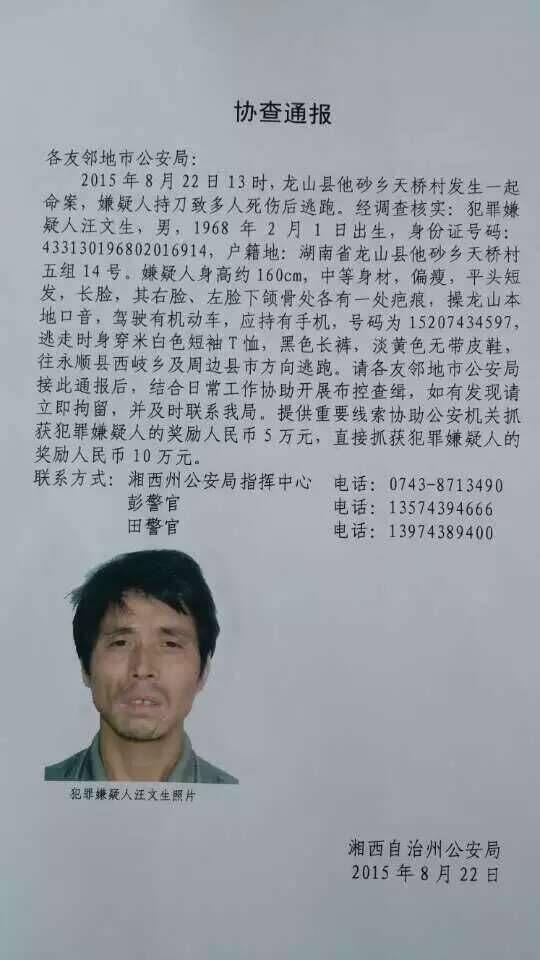 协查通报
各友邻地市公安局：
2015年8月22日13时，龙山县他砂乡天桥村发生一起
命案，嫌疑人持刀致多人死伤后逃跑。经调查核实：犯罪嫌
疑人汪文生，男，1968 年 2 月 1 日出生，身份证号码：
433130196802016914，户籍地：湖南省龙山县他砂乡天桥村
五组14号。嫌疑人身高约160cm，中等身材，偏瘦，平头短
发，长脸，其右脸、左脸下颌骨处各有一处疤痕，操龙山本
地口音，驾驶有机动车，应持有手机，号码为15207434597，
逃走时身穿米白色短袖T恤，黑色长裤，淡黄色无带皮鞋，
往永顺县西岐乡及周边县市方向逃跑。请各友邻地市公安局
接此通报后，结合日常工作协助开展布控查缉，如有发现请
立即拘留，并及时联系我局。提供重要线索协助公安机关抓
获犯罪嫌疑人的奖励人民币5万元，直接抓获犯罪嫌疑人的
奖励人民币10万元。
联系方式：湘西州公安局指挥中心 电话：0743-8713490
彭警官 电话：13574394666
田警官 电话：13974389400
犯罪嫌疑人汪文生照片
湘西自治州公安局
2015年8月22日